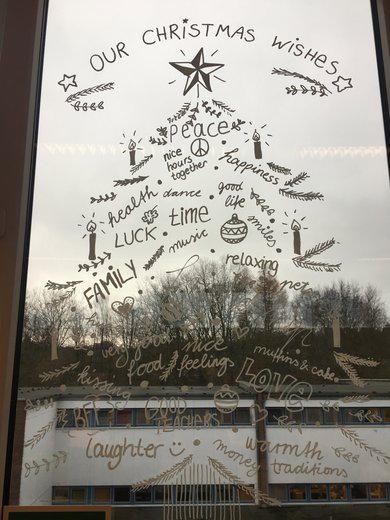 OUR CHRISTMAS WISHES
Peace
nice hours together
happiness
health
dance
good life
smiles
LUCK
time
music
FAMILY
relaxing
very good food
nice feelings
muffins & cake
kissing
LOVE
GOOD TEACHERS
laughter
warmth
money
traditions